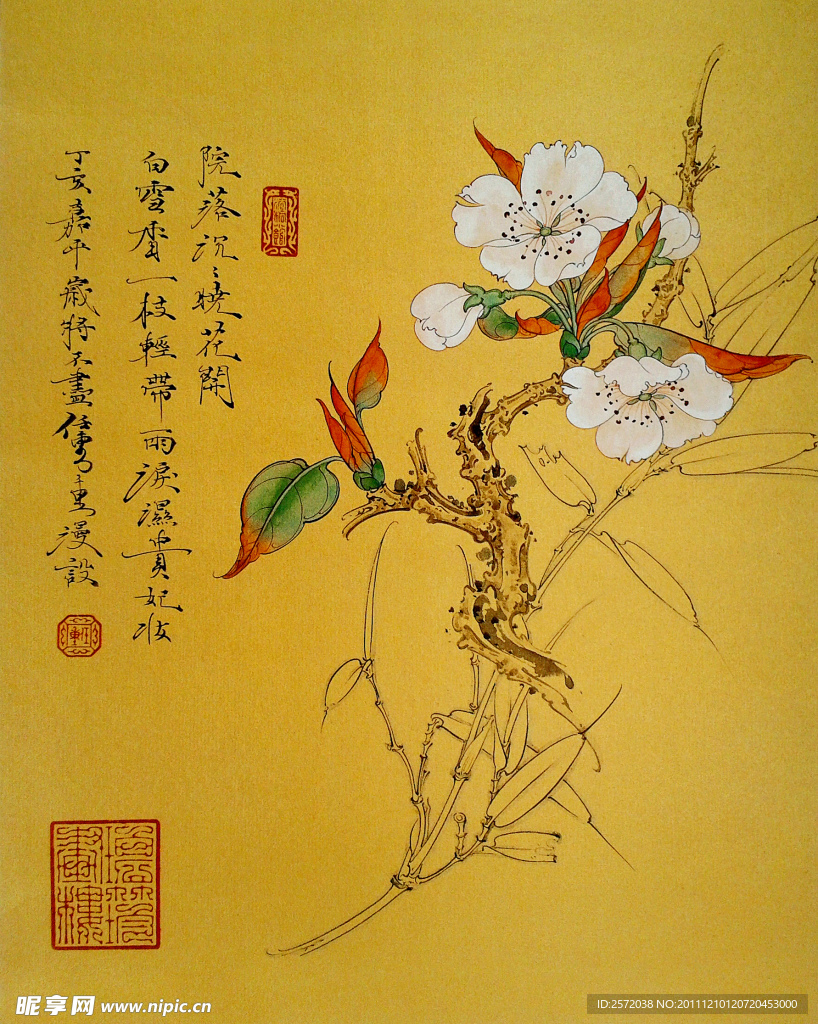 院落沉〻曉花開
白雪香一枝輕帶雨淚濕貴妃妝
丁亥嘉平歲將不盡任重漫設
昵享网 www.nipic.cn
ID:2572038 NO:20111210120720453000